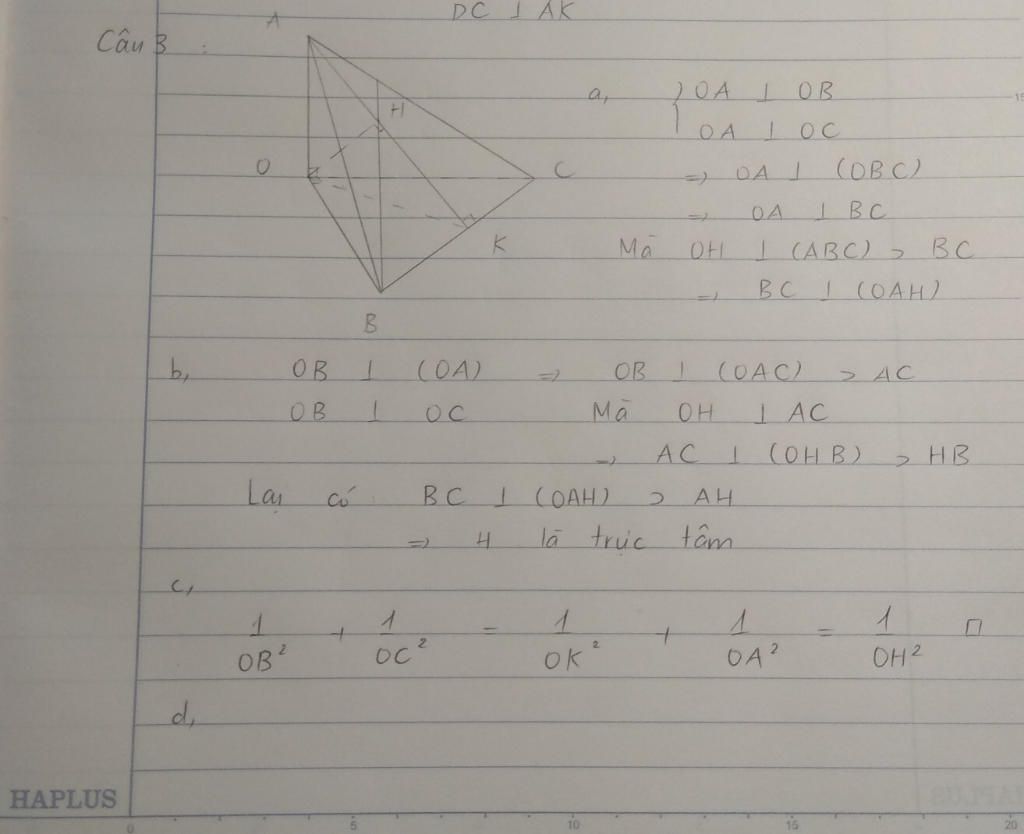 DC ⊥ AK
Câu 3 :
A
H
O
C
K
B
a, { OA ⊥ OB
OA ⊥ OC
=> OA ⊥ (OBC)
=> OA ⊥ BC
Mà OH ⊥ (ABC) ⊃ BC
=> BC ⊥ (OAH)
b, OB ⊥ (OA) => OB ⊥ (OAC) ⊃ AC
OB ⊥ OC Mà OH ⊥ AC
=> AC ⊥ (OHB) ⊃ HB
Lại có BC ⊥ (OAH) ⊃ AH
=> H là trực tâm
c,
1/OB² + 1/OC² = 1/OK² + 1/OA² = 1/OH² □
d,
HAPLUS
0 5 10 15 20